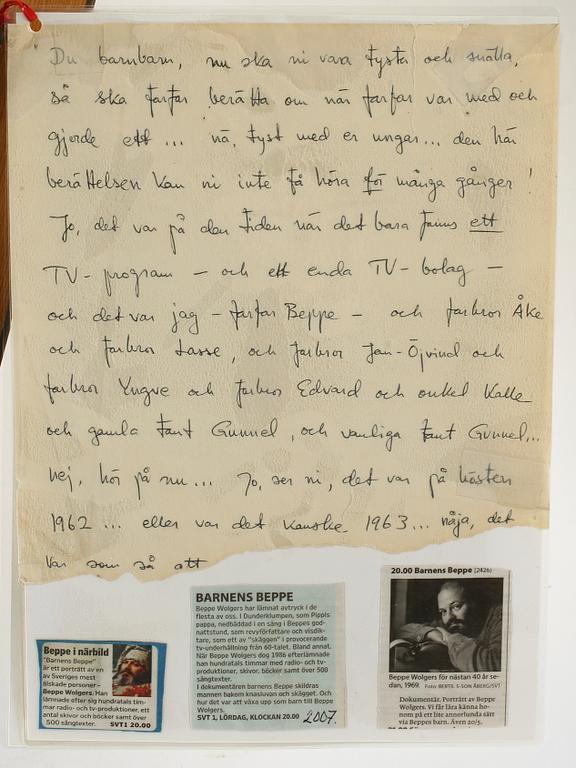 Du barnbarn, nu ska ni vara tysta och snälla,
så ska farfar berätta om när farfar var med och
gjorde ett... nä, tyst med er ungar... den här
berättelsen kan ni inte få höra för många gånger!
Jo, det var på den tiden när det bara fanns ett
TV-program - och ett enda TV-bolag -
och det var jag - farfar Beppe - och farbror Åke
och farbror Lasse, och farbror Jan-Öjvind och
farbror Yngve och farbror Edvard och onkel Kalle
och gamla tant Gunnel, och vanliga tant Gunnel...
nej, hör på nu... Jo, ser ni, det var på hösten
1962... eller var det kanske 1963... nåja, det
var som så att
Beppe i närbild
"Barnens Beppe"
är ett porträtt av en
av Sveriges mest
älskade personer –
Beppe Wolgers. Han
lämnade efter sig hundratals tim-
mar radio- och tv-produktioner, ett
antal skivor och böcker samt över
500 sångtexter. SVT1 20.00
BARNENS BEPPE
Beppe Wolgers har lämnat avtryck i de
flesta av oss. I Dunderklumpen, som Pippis
pappa, nedbäddad i en säng i Beppes god-
nattstund, som revyförfattare och visdik-
tare, som ett av "skäggen" i provocerande
tv-underhållning från 60-talet. Bland annat.
När Beppe Wolgers dog 1986 efterlämnade
han hundratals timmar med radio- och tv-
produktioner, skivor, böcker samt över 500
sångtexter.
I dokumentären barnens Beppe skildras
mannen bakom knasluvan och skägget. Och
hur det var att växa upp som barn till Beppe
Wolgers.
SVT 1, LÖRDAG, KLOCKAN 20.00 2007.
20.00 Barnens Beppe (2426)
Beppe Wolgers för nästan 40 år se-
dan, 1969. Foto: BERTIL S-SON ÅBERG/SVT
Dokumentär. Porträtt av Beppe
Wolgers. Vi får lära känna ho-
nom på ett lite annorlunda sätt
via Beppes barn. Även 20/5.